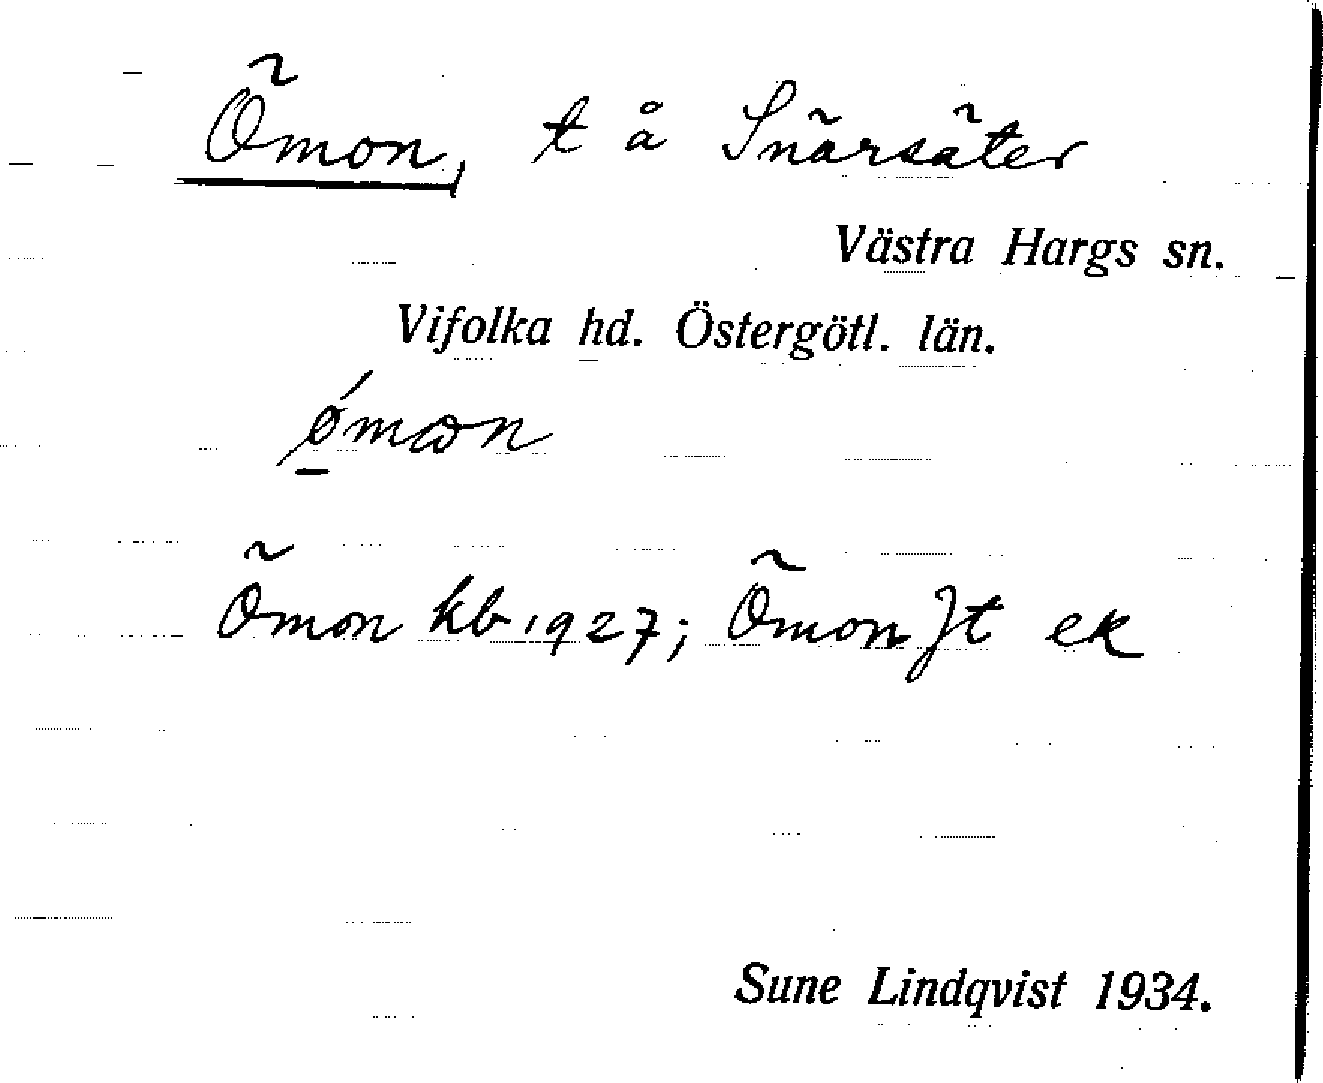 Ömon, t å Snärsäter
Västra Hargs sn.
Vifolka hd. Östergötl. län.
ǿmɷn
Ömon kb 1927; Ömon Jt ek
Sune Lindqvist 1934.